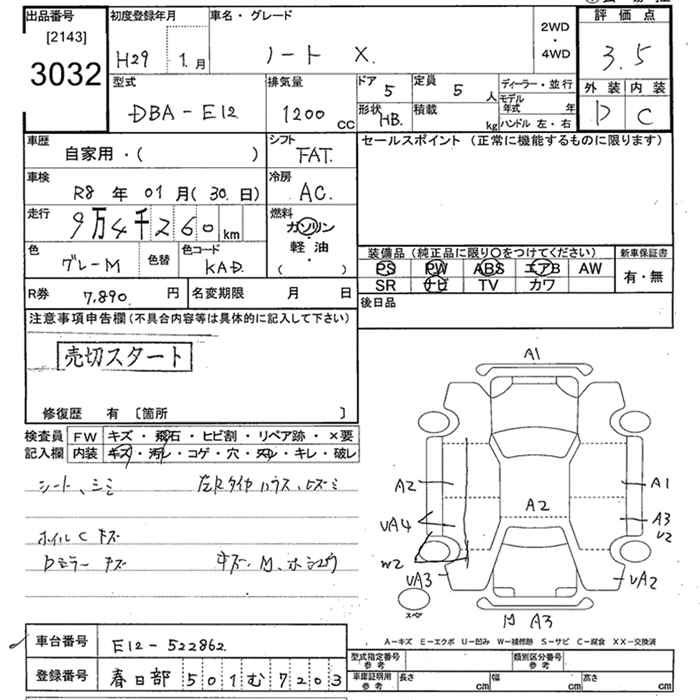 出品番号
[2143]
3032
初度登録年月
H29 1.月
車名・グレード
ノート X.
2WD
・
4WD
評価点
3.5
外装 内装
D C
型式
DBA-E12
排気量
1200 cc
ドア 5
定員 5 人
形状 HB.
積載 kg
ディーラー・並行
モデル年式 年
ハンドル 左・右
車歴
自家用・( )
シフト
FAT.
セールスポイント (正常に機能するものに限ります)
車検
R8 年 01 月(30.日)
冷房
AC.
走行
9万4千260km
燃料
ガソリン
・
軽油
( )
色
グレーM
色替
色コード
KAD.
装備品(純正品に限り〇をつけてください)
PS PW ABS エアB AW
SR ナビ TV カワ
新車保証書
有・無
R券 7,890. 円
名変期限 月 日
後日品
注意事項申告欄(不具合内容等は具体的に記入して下さい)
売切スタート
修復歴 有 〔箇所 〕
検査員
記入欄
FW キズ・飛石・ヒビ割・リペア跡・×要
内装 キズ・汚レ・コゲ・穴・スレ・キレ・破レ
シート、シミ
ホイルC キズ
Dミラー キズ
A1
A2
UA4
W2
UA3
A2
A1
A3
U2
UA2
A3
スペア
A-キズ E-エクボ U-凹み W-補修跡 S-サビ C-腐食 XX-交換済
車台番号 E12-522862.
登録番号 春日部 501む7203
型式指定番号
参考
類別区分番号
参考
車庫証明用
参考
長さ cm 幅 cm 高さ cm